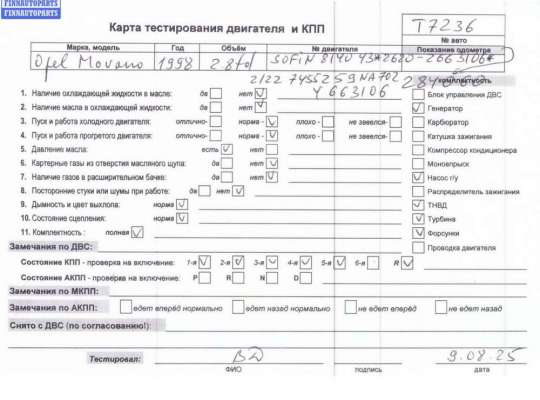 FINNAUTOPARTS
FINNAUTOPARTS
Карта тестирования двигателя и КПП
T7236
№ авто
Марка, модель Год Объём № двигателя Показание одометра
Opel Movano 1998 SOFIN 8140 43*2620-2663106*
2122 7455259NA702
Y 663106
Комплектность
1. Наличие охлаждающей жидкости в масле: да нет Блок управления ДВС
2. Наличие масла в охлаждающей жидкости: да нет Генератор
3. Пуск и работа холодного двигателя: отлично- норма - плохо - не завелся- Карбюратор
4. Пуск и работа прогретого двигателя: отлично- норма - плохо - не завелся- Катушка зажигания
5. Давление масла: есть нет Компрессор кондиционера
6. Картерные газы из отверстия масляного щупа: да нет Моновпрыск
7. Наличие газов в расширительном бачке: да нет Насос г/у
8. Посторонние стуки или шумы при работе: да нет Распределитель зажигания
9. Дымность и цвет выхлопа: норма ТНВД
10. Состояние сцепления: норма Турбина
11. Комплектность : полная Форсунки
Замечания по ДВС: Проводка двигателя
Состояние КПП - проверка на включение: 1-я 2-я 3-я 4-я 5-я 6-я R
Состояние АКПП - проверка на включение: P R N D
Замечания по МКПП:
Замечания по АКПП: едет вперёд нормально едет назад нормально не едет вперёд не едет назад
Снято с ДВС (по согласованию!):
Тестировал: 9.08.25
ФИО подпись дата